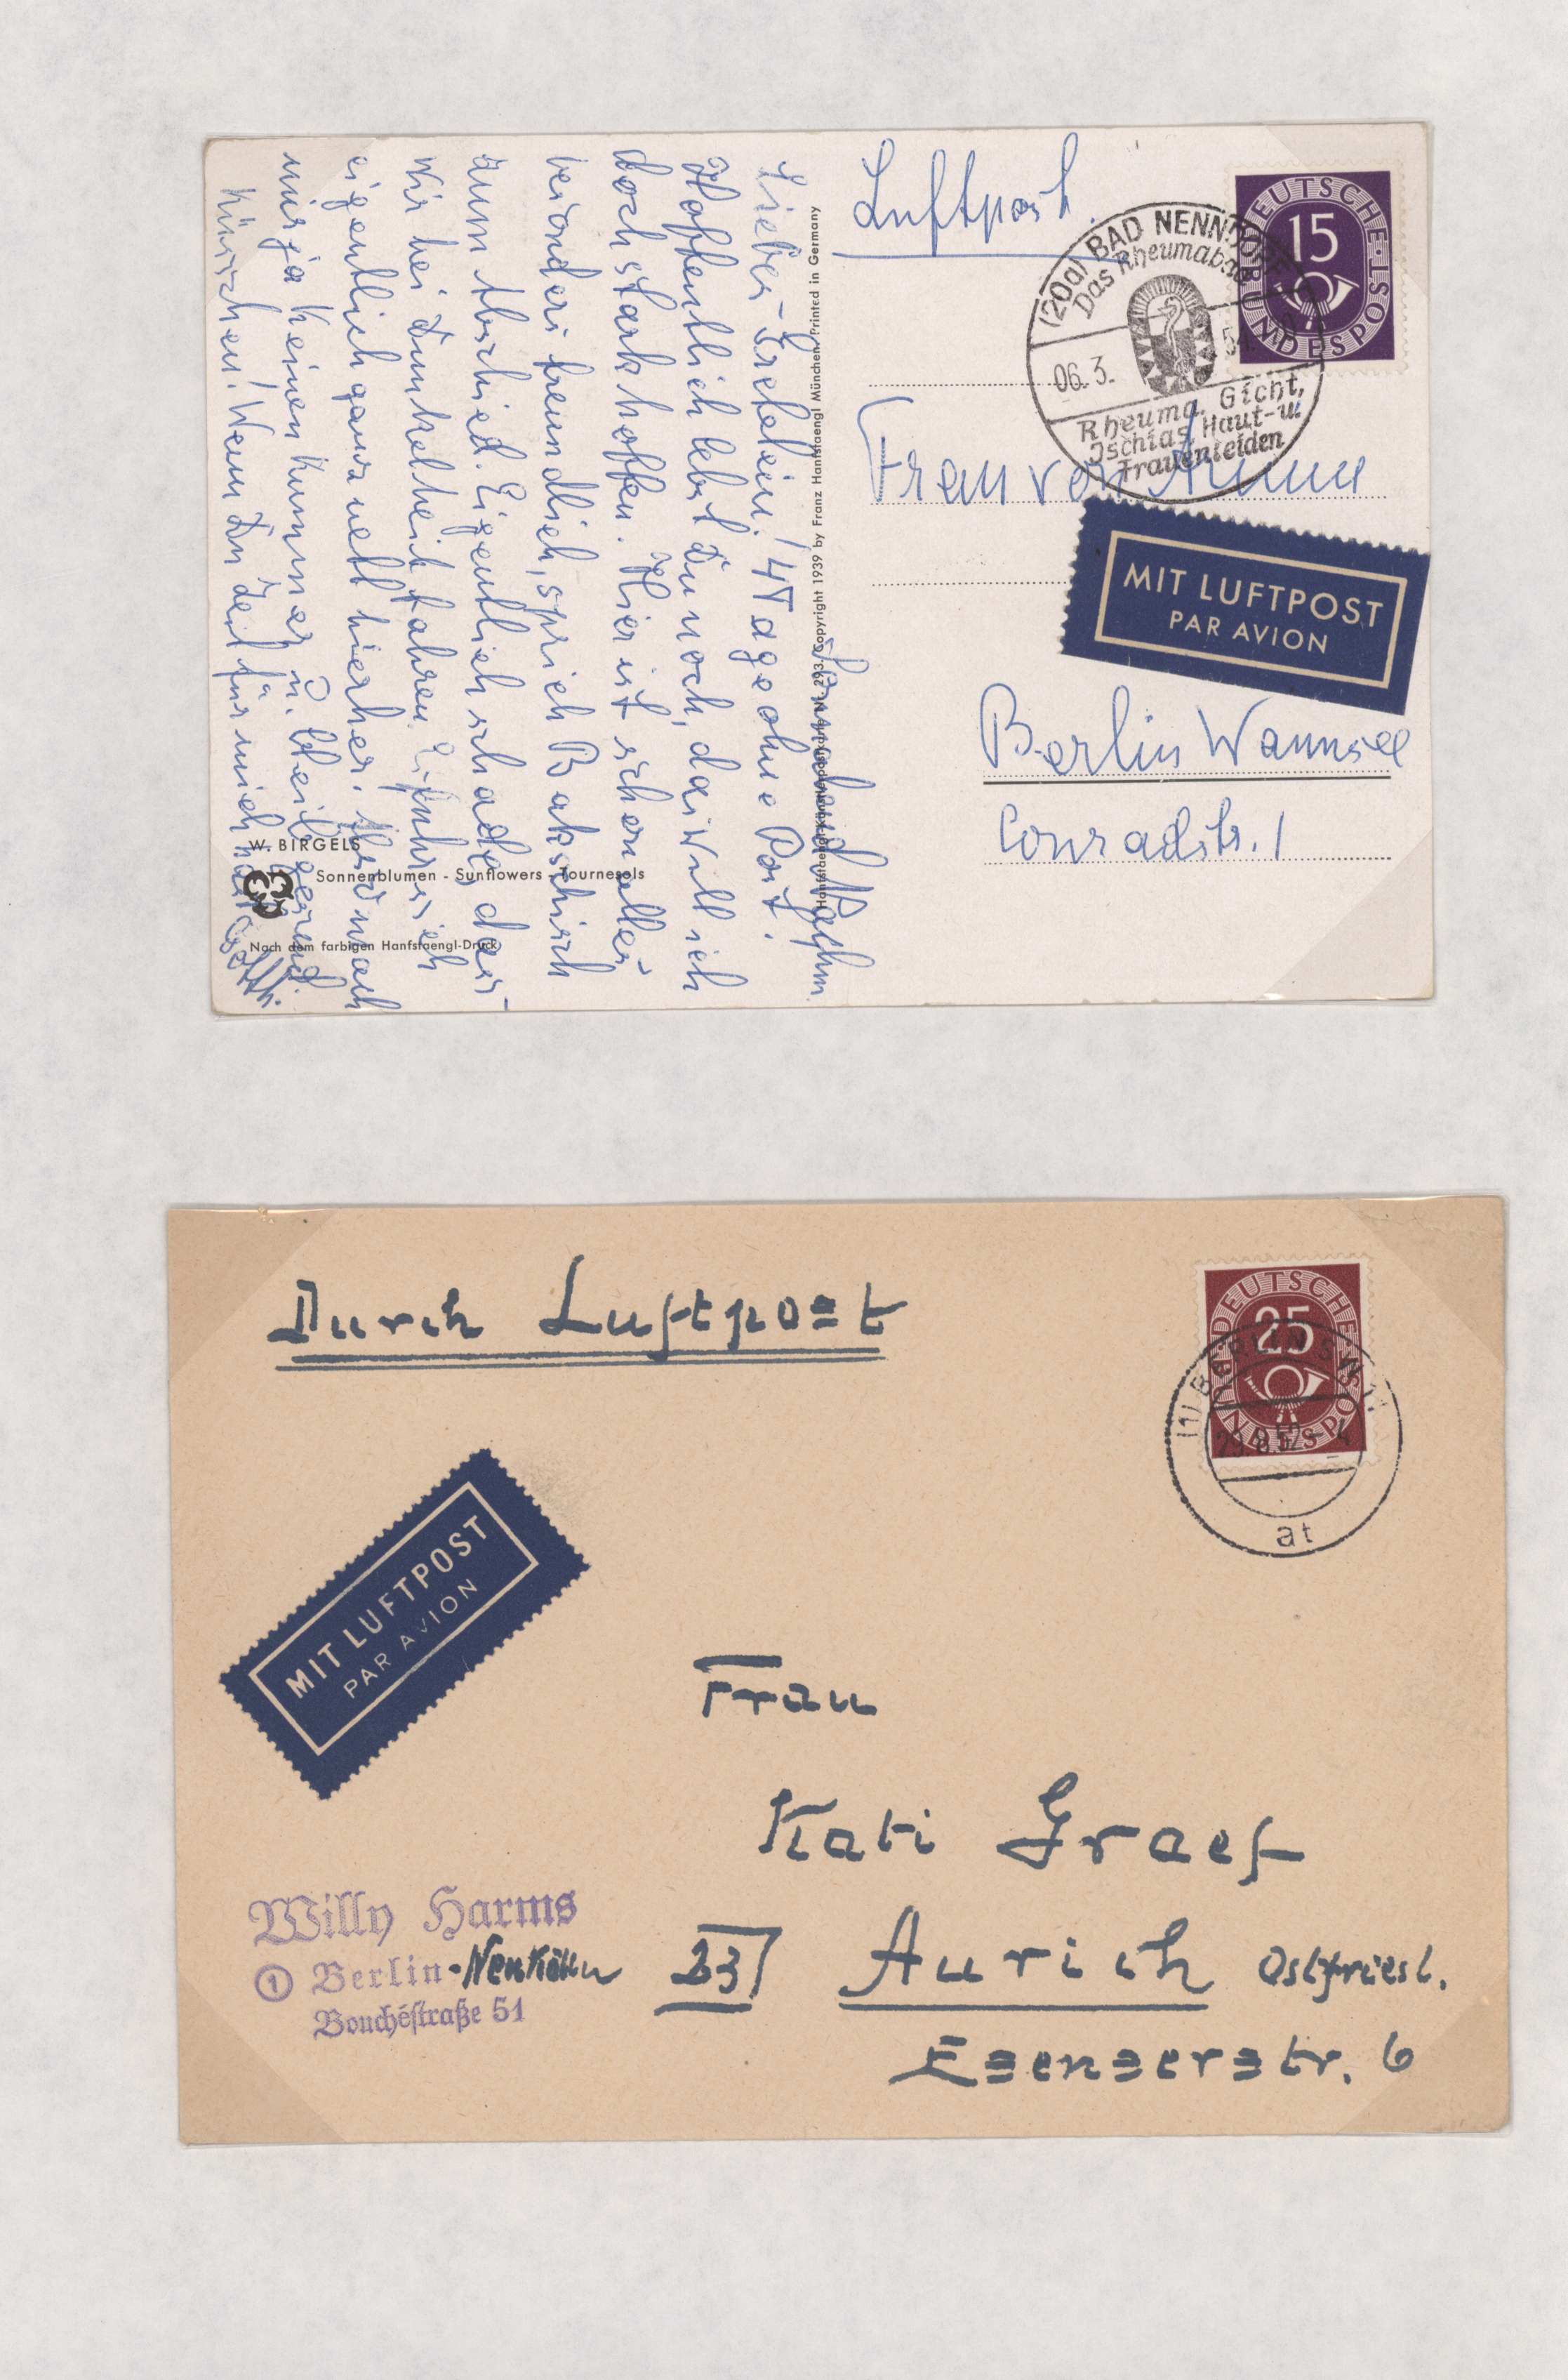 Luftpost.
DEUTSCHE BUNDESPOST
15
(20a) BAD NENNDORF
Das Rheumabad
06.3.
Rheuma, Gicht,
Ischias, Haut- u.
Frauenleiden
Frau von Arnim
MIT LUFTPOST
PAR AVION
Berlin Wannsee
Conradstr. 1
Sonnabend Nachm.
! 4 Tage ohne Post!
Hoffentlich lebst Du noch, das will ich
doch stark hoffen. Hier ist schon alles
besonders freundlich, sprich Bakschisch
zum Abschied. Eigentlich schade, dass
wir bei Dunkelheit fahren.
eigentlich ganz nett hierher.
mir ja keinen Kummer u. bleib gesund.
Küsschen! Wenn Du Zeit für mich hast
Hanfstaengl-Künstlerpostkarte Nr. 293. Copyright 1939 by Franz Hanfstaengl München. Printed in Germany
W. BIRGELS
Sonnenblumen - Sunflowers - Tournesols
Nach dem farbigen Hanfstaengl-Druck
Durch Luftpost
DEUTSCHE BUNDESPOST
25
(1) BERLIN SW
29.8.52.-4
at
MIT LUFTPOST
PAR AVION
Frau
Kati Graef
23 Aurich Ostfriesl.
Esenserstr. 6
Willy Harms
① Berlin-Neukölln
Bouchéstraße 51